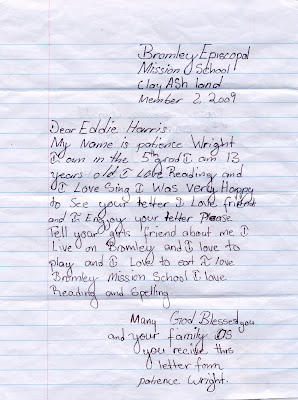 Bromley Episcopal
Mission School
Clay Ash land
Member 2, 2009
Dear Eddie Harris
My Name is patience Wright
I am in the 5th grad I am 13
years old I Love Reading and
I Love Sing I Was Very Happy
to See your letter I Love friends
and I Enjoy your letter Please
Tell your girls friend about me I
Live on Bromley and I love to
play and I Love to eat I love
Bromley Mission School I love
Reading and Spelling
Many God Blesses you
and your family OS
you recive this
letter form
patience Wright.